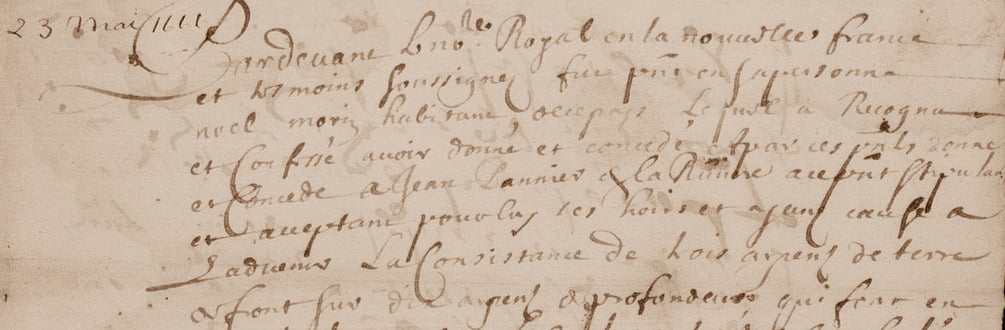 23 Mai 1661
Pardevant le no.re Royal en la nouvelle france
et tesmoins soussignez fut pnt en sa personne
noel morin habitant de ce pays Lequel a Recognu
et Confessé avoir donné et concedé et par ces pnts donne
et Concede A Jean de la Riviere a ce pnt stipulan
et acceptant pour luy ses hoirs et ayans cause a
Ladvenir La Consistance de trois arpens de terre
de front sur dix arpens de profondeur qui font en